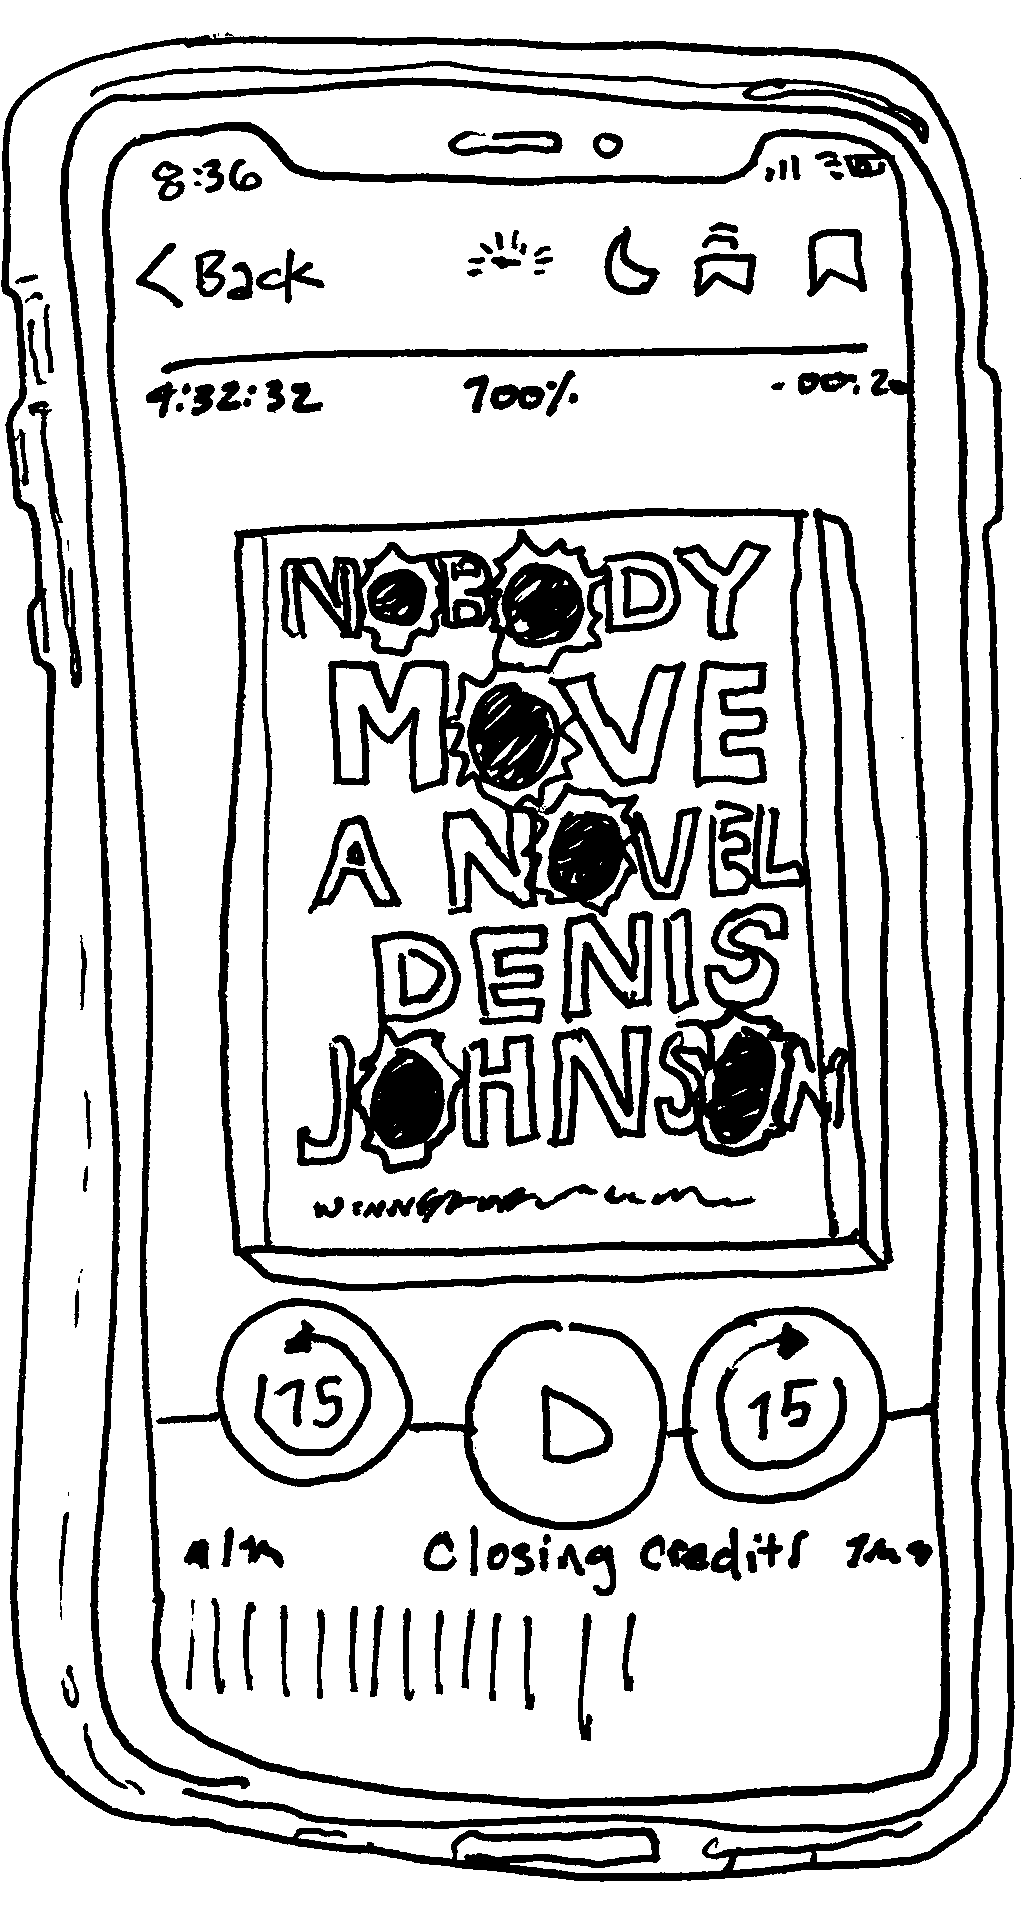 8:36
Back
4:32:32 100% - 00:20
NOBODY
MOVE
A NOVEL
DENIS
JOHNSON
15 15
Closing Credits